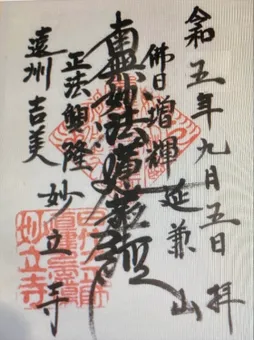 令和五年九月五日 拝
延兼山
佛日増輝
南無妙法蓮華経
正法興隆
妙立寺
遠州 吉美
妙立寺